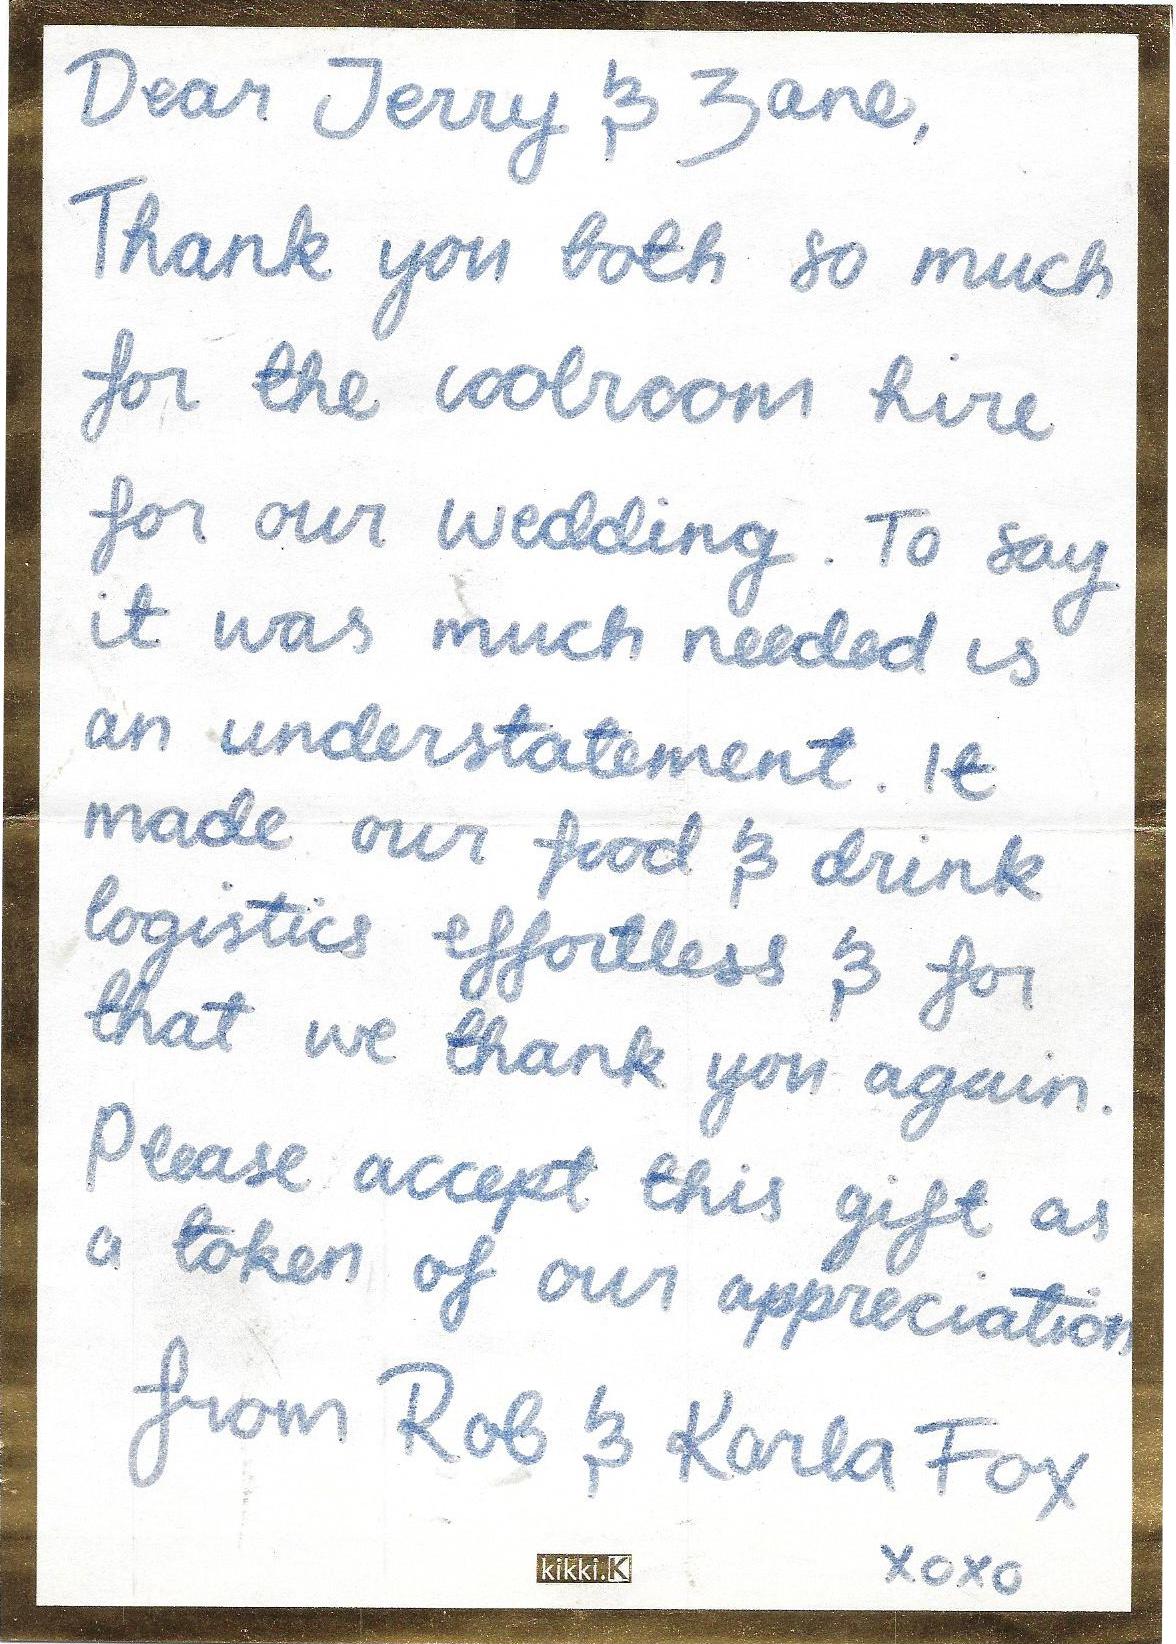 Dear Jerry & Zane,
Thank you both so much
for the coolroom hire
for our wedding. To say
it was much needed is
an understatement. It
made our food & drink
logistics effortless & for
that we thank you again.
Please accept this gift as
a token of our appreciation
from Rob & Karla Fox
xoxo
kikki.K